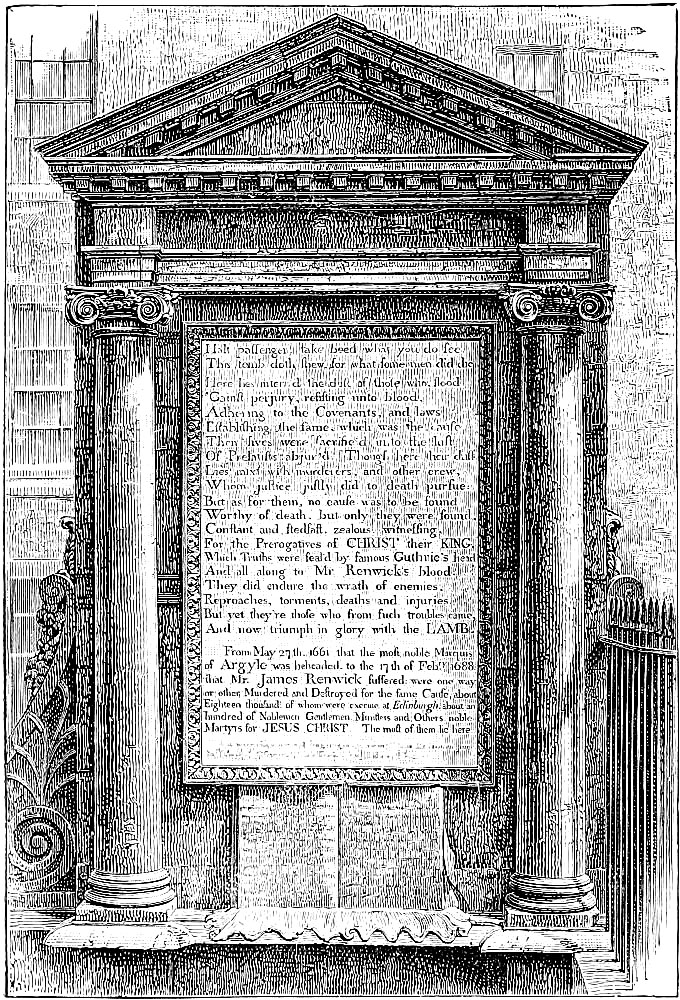 Halt paſſenger, take heed what you do ſee,
This tomb doth ſhew, for what ſome men did die
Here lies interr'd the duſt of thoſe who ſtood
'Gainſt perjury, reſiſting unto blood,
Adhering to the Covenants, and laws
Eſtabliſhing the ſame, which was the cauſe
Their lives were ſacrific'd unto the luſt
Of Prelatiſts abjur'd. Though here their duſt
Lies mixt with murderers, and other crew,
Whom juſtice juſtly did to death purſue:
But as for them, no cauſe was to be found
Worthy of death, but only they were found,
Conſtant and ſtedfaſt, zealous, witneſſing,
For the Prerogatives of CHRIST their KING.
Which Truths were ſeal'd by famous Guthrie's head
And all along to Mr Renwick's blood.
They did endure the wrath of enemies,
Reproaches, torments, deaths and injuries,
But yet they're thoſe who from ſuch troubles came,
And now triumph in glory with the LAMB.
From May 27th, 1661 that the moſt noble Marquis
of Argyle was beheaded, to the 17th of Feb.ry 1688
that Mr. James Renwick ſuffered: were one way
or other Murdered and Deſtroyed for the ſame Cauſe, about
Eighteen thouſand: of whom were execute at Edinburgh, about an
hundred of Noblemen Gentlemen, Miniſters and Others noble
Martyrs for JESUS CHRIST. The moſt of them lie here